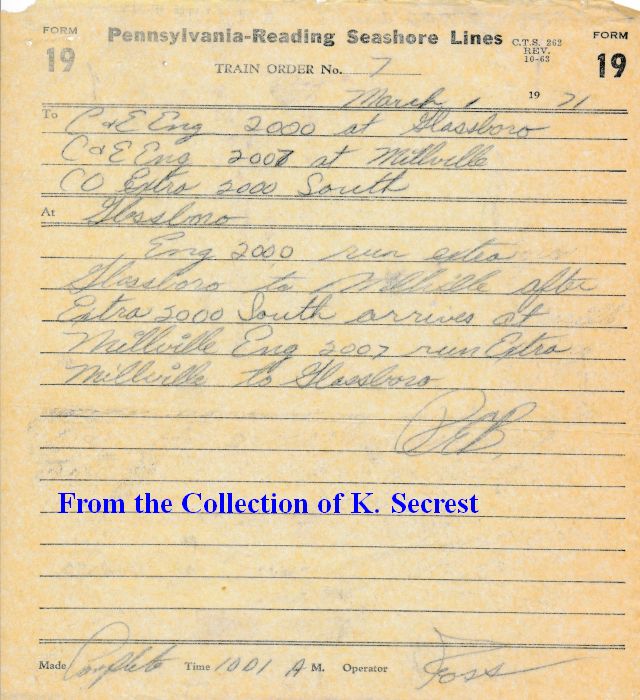 FORM 19
Pennsylvania-Reading Seashore Lines
C.T.S. 262
REV.
10-63
FORM 19
TRAIN ORDER No. 7
March 1 1971
To C & E Eng 2000 at Glassboro
C & E Eng 2007 at Millville
CO Extra 2000 South
At Glassboro
Eng 2000 run extra
Glassboro to Millville after
Extra 2000 South arrives at
Millville Eng 2007 run Extra
Millville to Glassboro
From the Collection of K. Secrest
Made Complete Time 1001 A M. Operator Foss